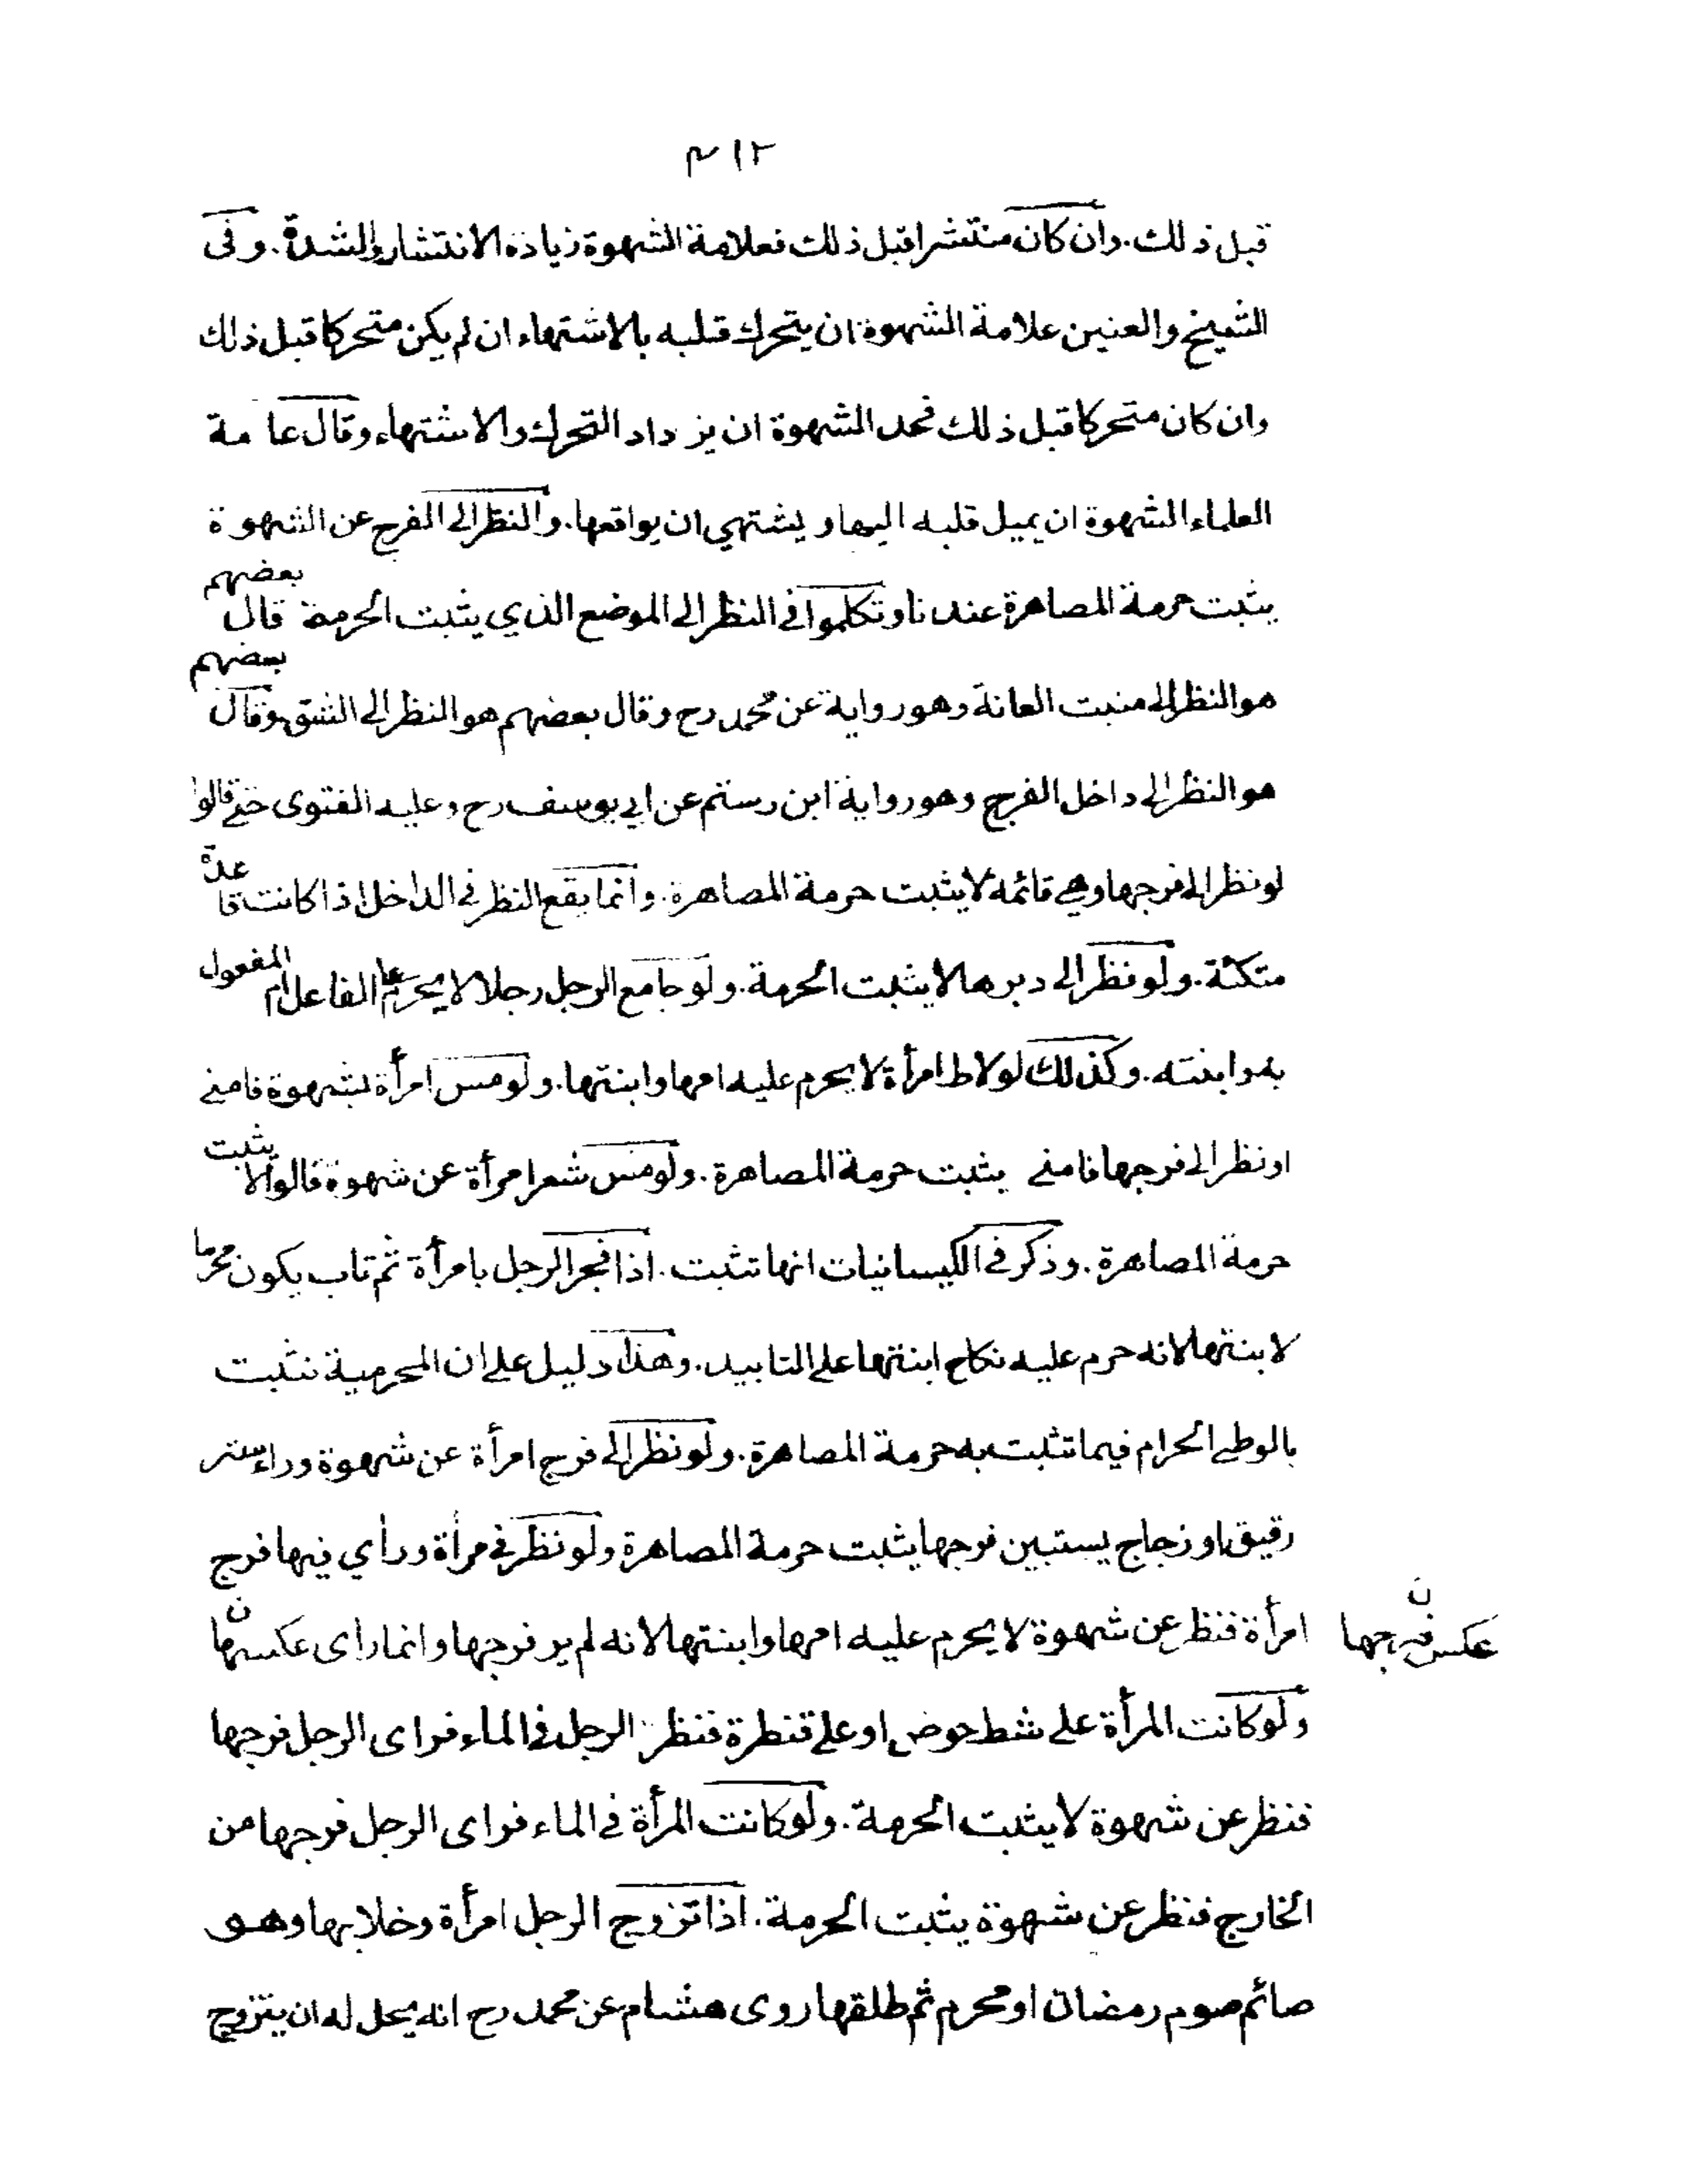 ٣١٢
قبل ذلك. وان كان منتشرا قبل ذلك فعلامة الشهوة زيادة الانتشار والشدة. وفى
الشيخ والعنين علامة الشهوة ان يتحرك قلبه بالاشتهاء ان لم يكن متحركا قبل ذلك
وان كان متحركا قبل ذلك فحد الشهوة ان يزداد التحرك والاشتهاء وقال عامة
العلماء الشهوة ان يميل قلبه اليها ويشتهي ان يواقعها. والنظر الى الفرج عن الشهوة
يثبت حرمة المصاهرة عندنا وتكلموا فى النظر الى الموضع الذي يثبت الحرمة قال بعضهم
هو النظر الى منبت العانة وهو رواية عن محمد رح وقال بعضهم هو النظر الى الشق وقال بعضهم
هو النظر الى داخل الفرج وهو رواية ابن رستم عن ابي يوسف رح وعليه الفتوى حتى قالوا
لو نظر الى فرجها وهي قائمة لا يثبت حرمة المصاهرة. وانما يقع النظر فى الداخل اذا كانت قاعدة
متكئة. ولو نظر الى دبرها لا يثبت الحرمة. ولو جامع الرجل رجلا لا يحرم على الفاعل ام المفعول
به وابنته. وكذلك لو لاط امرأة لا يحرم عليه امها وابنتها. ولو مس امرأة بشهوة فامنى
او نظر الى فرجها فامنى يثبت حرمة المصاهرة. ولو مس شعر امرأة عن شهوة قالوا لا يثبت
حرمة المصاهرة. وذكر فى الكيسانيات انها تثبت. اذا فجر الرجل بامرأة ثم تاب يكون محرما
لابنتها لانه حرم عليه نكاح ابنتها على التابيد. وهذا دليل على ان المحرمية تثبت
بالوطى الحرام فيما تثبت به حرمة المصاهرة. ولو نظر الى فرج امرأة عن شهوة وراء ستر
رقيق او زجاج يستبين فرجها يثبت حرمة المصاهرة ولو نظر فى مرأة ورأي فيها فرج
امرأة فنظر عن شهوة لا يحرم عليه امها وابنتها لانه لم ير فرجها وانما راى عكسها ن
ن
عكس فرجها
ولو كانت المرأة على شط حوض او على قنطرة فنظر الرجل فى الماء فراى الرجل فرجها
فنظر عن شهوة لا يثبت الحرمة. ولو كانت المرأة فى الماء فراى الرجل فرجها من
الخارج فنظر عن شهوة يثبت الحرمة. اذا تزوج الرجل امرأة وخلا بها وهو
صائم صوم رمضان او محرم ثم طلقها روى هشام عن محمد رح انه يحل له ان يتزوج